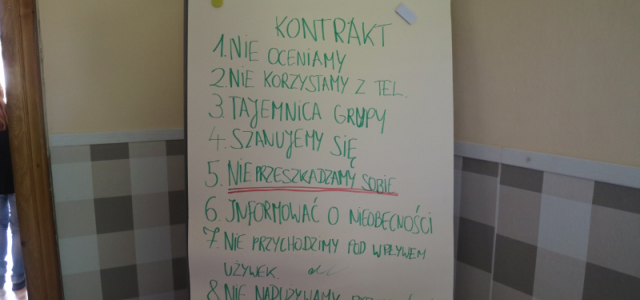 KONTRAKT
1. NIE OCENIAMY
2. NIE KORZYSTAMY Z TEL.
3. TAJEMNICA GRUPY
4. SZANUJEMY SIĘ
5. NIE PRZESZKADZAMY SOBIE
6. INFORMOWAĆ O NIEOBECNOŚCI
7. NIE PRZYCHODZIMY POD WPŁYWEM
UŻYWEK
8. NIE